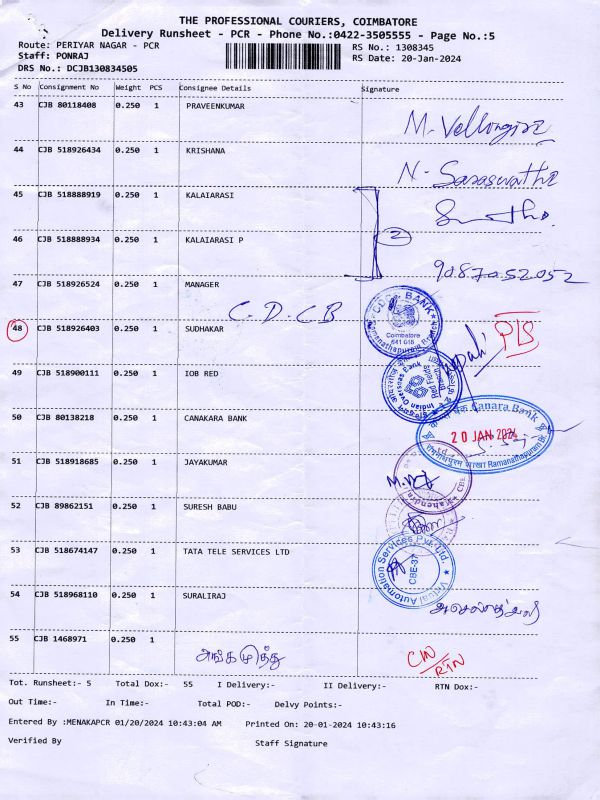 THE PROFESSIONAL COURIERS, COIMBATORE
Delivery Runsheet - PCR - Phone No.:0422-3505555 - Page No.:5
Route: PERIYAR NAGAR - PCR
RS No.: 1308345
Staff: PONRAJ
RS Date: 20-Jan-2024
DRS No.: DCJB130834505
S No Consignment No Weight PCS Consignee Details Signature
43 CJB 80118408 0.250 1 PRAVEENKUMAR
M. Vellongiri
44 CJB 518926434 0.250 1 KRISHANA
N. Saraswathi
45 CJB 518888919 0.250 1 KALAIARASI
2
46 CJB 518888934 0.250 1 KALAIARASI P
9087052052
47 CJB 518926524 0.250 1 MANAGER
C.D.C.B
CDCC BANK
Coimbatore
641 045
Ramanathapuram Branch
48 CJB 518926403 0.250 1 SUDHAKAR
49 CJB 518900111 0.250 1 IOB RED
Indian Overseas Bank
Red Fields
Branch
50 CJB 80138218 0.250 1 CANAKARA BANK
Canara Bank
20 JAN 2024
Ramanathapuram Br.
51 CJB 518918685 0.250 1 JAYAKUMAR
Mahendra
CBE
52 CJB 89862151 0.250 1 SURESH BABU
53 CJB 518674147 0.250 1 TATA TELE SERVICES LTD
Automation Services Pvt. Ltd.
CBE-37
54 CJB 518968110 0.250 1 SURALIRAJ
55 CJB 1468971 0.250 1
அங்கமுத்து
RTN
Tot. Runsheet:- 5 Total Dox:- 55 I Delivery:- II Delivery:- RTN Dox:-
Out Time:- In Time:- Total POD:- Delvy Points:-
Entered By :MENAKAPCR 01/20/2024 10:43:04 AM Printed On: 20-01-2024 10:43:16
Verified By Staff Signature